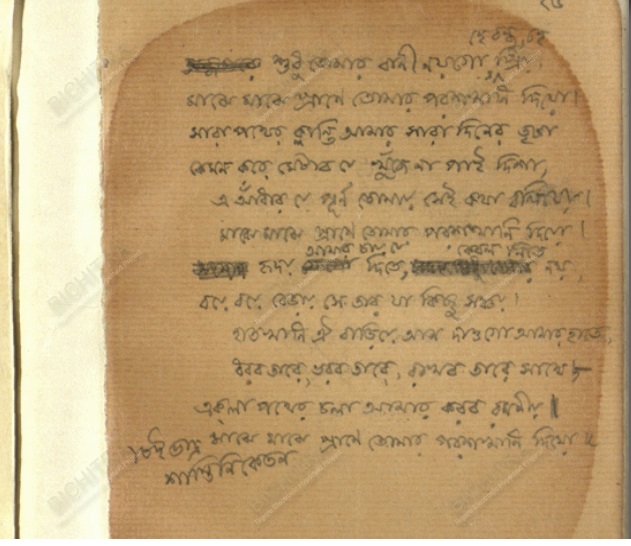 হে বন্ধু, হে
শুধু তোমার বাণী নয় গো প্রিয়
মাঝে মাঝে প্রাণে তোমার পরশখানি দিয়ো।
সারা পথের ক্লান্তি আমার সারা দিনের তৃষা
কেমন করে মেটাব যে খুঁজে না পাই দিশা,
এ আঁধার যে পূর্ণ তোমায় সেই কথা বলিয়ো।
মাঝে মাঝে প্রাণে তোমার পরশখানি দিয়ো।
আমার চায় যে কেবল নিতে
হৃদয় দিতে, নয়,
বয়ে বয়ে বেড়ায় সে তার যা কিছু সঞ্চয়।
হাতখানি ঐ বাড়িয়ে আন দাওগো আমার হাতে,
ধরব তারে, ভরব তারে, রাখব তারে সাথে,—
একলা পথের চলা আমার করব রমণীয়।
মাঝে মাঝে প্রাণে তোমার পরশখানি দিয়ো॥
১৮ই ভাদ্র
শান্তিনিকেতন